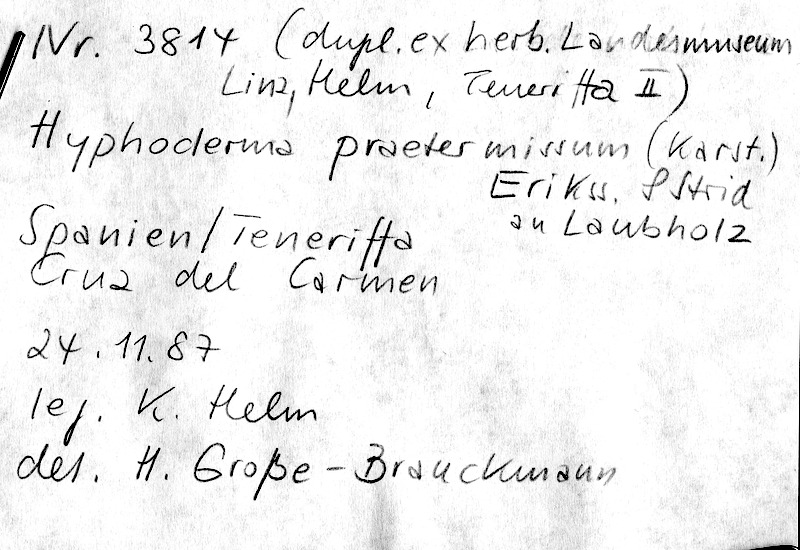 Nr. 3814 (dupl. ex herb. Landesmuseum
Linz, Helm, Teneriffa II)
Hyphoderma praetermissum (Karst.)
Erikss. & Strid
an Laubholz
Spanien/Teneriffa
Cruz del Carmen
24.11.87
leg. K. Helm
det. H. Große-Brauckmann